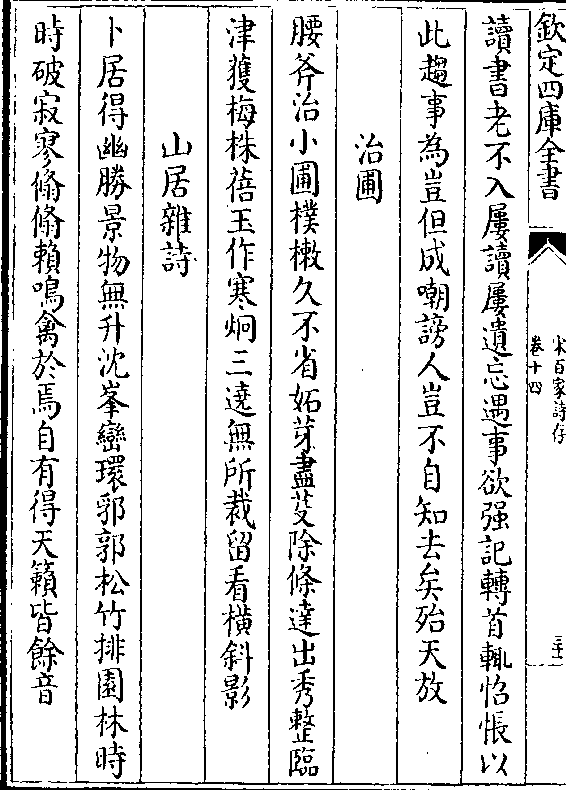 欽定四庫全書
宋百家詩存
卷十四
三十一
讀書老不入屢讀屢遺忘遇事欲强記轉首輒怊悵以
此趨事為豈但成嘲謗人豈不自知去矣殆天放
治圃
腰斧治小圃樸樕久不省妬芽盡芟除條達出秀整臨
津獲梅株蓓玉作寒炯三遶無所裁留看橫斜影
山居雜詩
卜居得幽勝景物無升沈峯巒環郛郭松竹排園林時
時破寂寥翛翛賴鳴禽於焉自有得天籟皆餘音